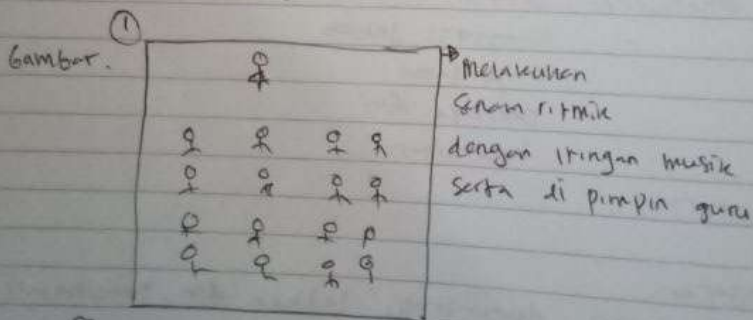 ①
Gambar.
Melakukan
senam ritmik
dengan iringan musik
serta di pimpin guru